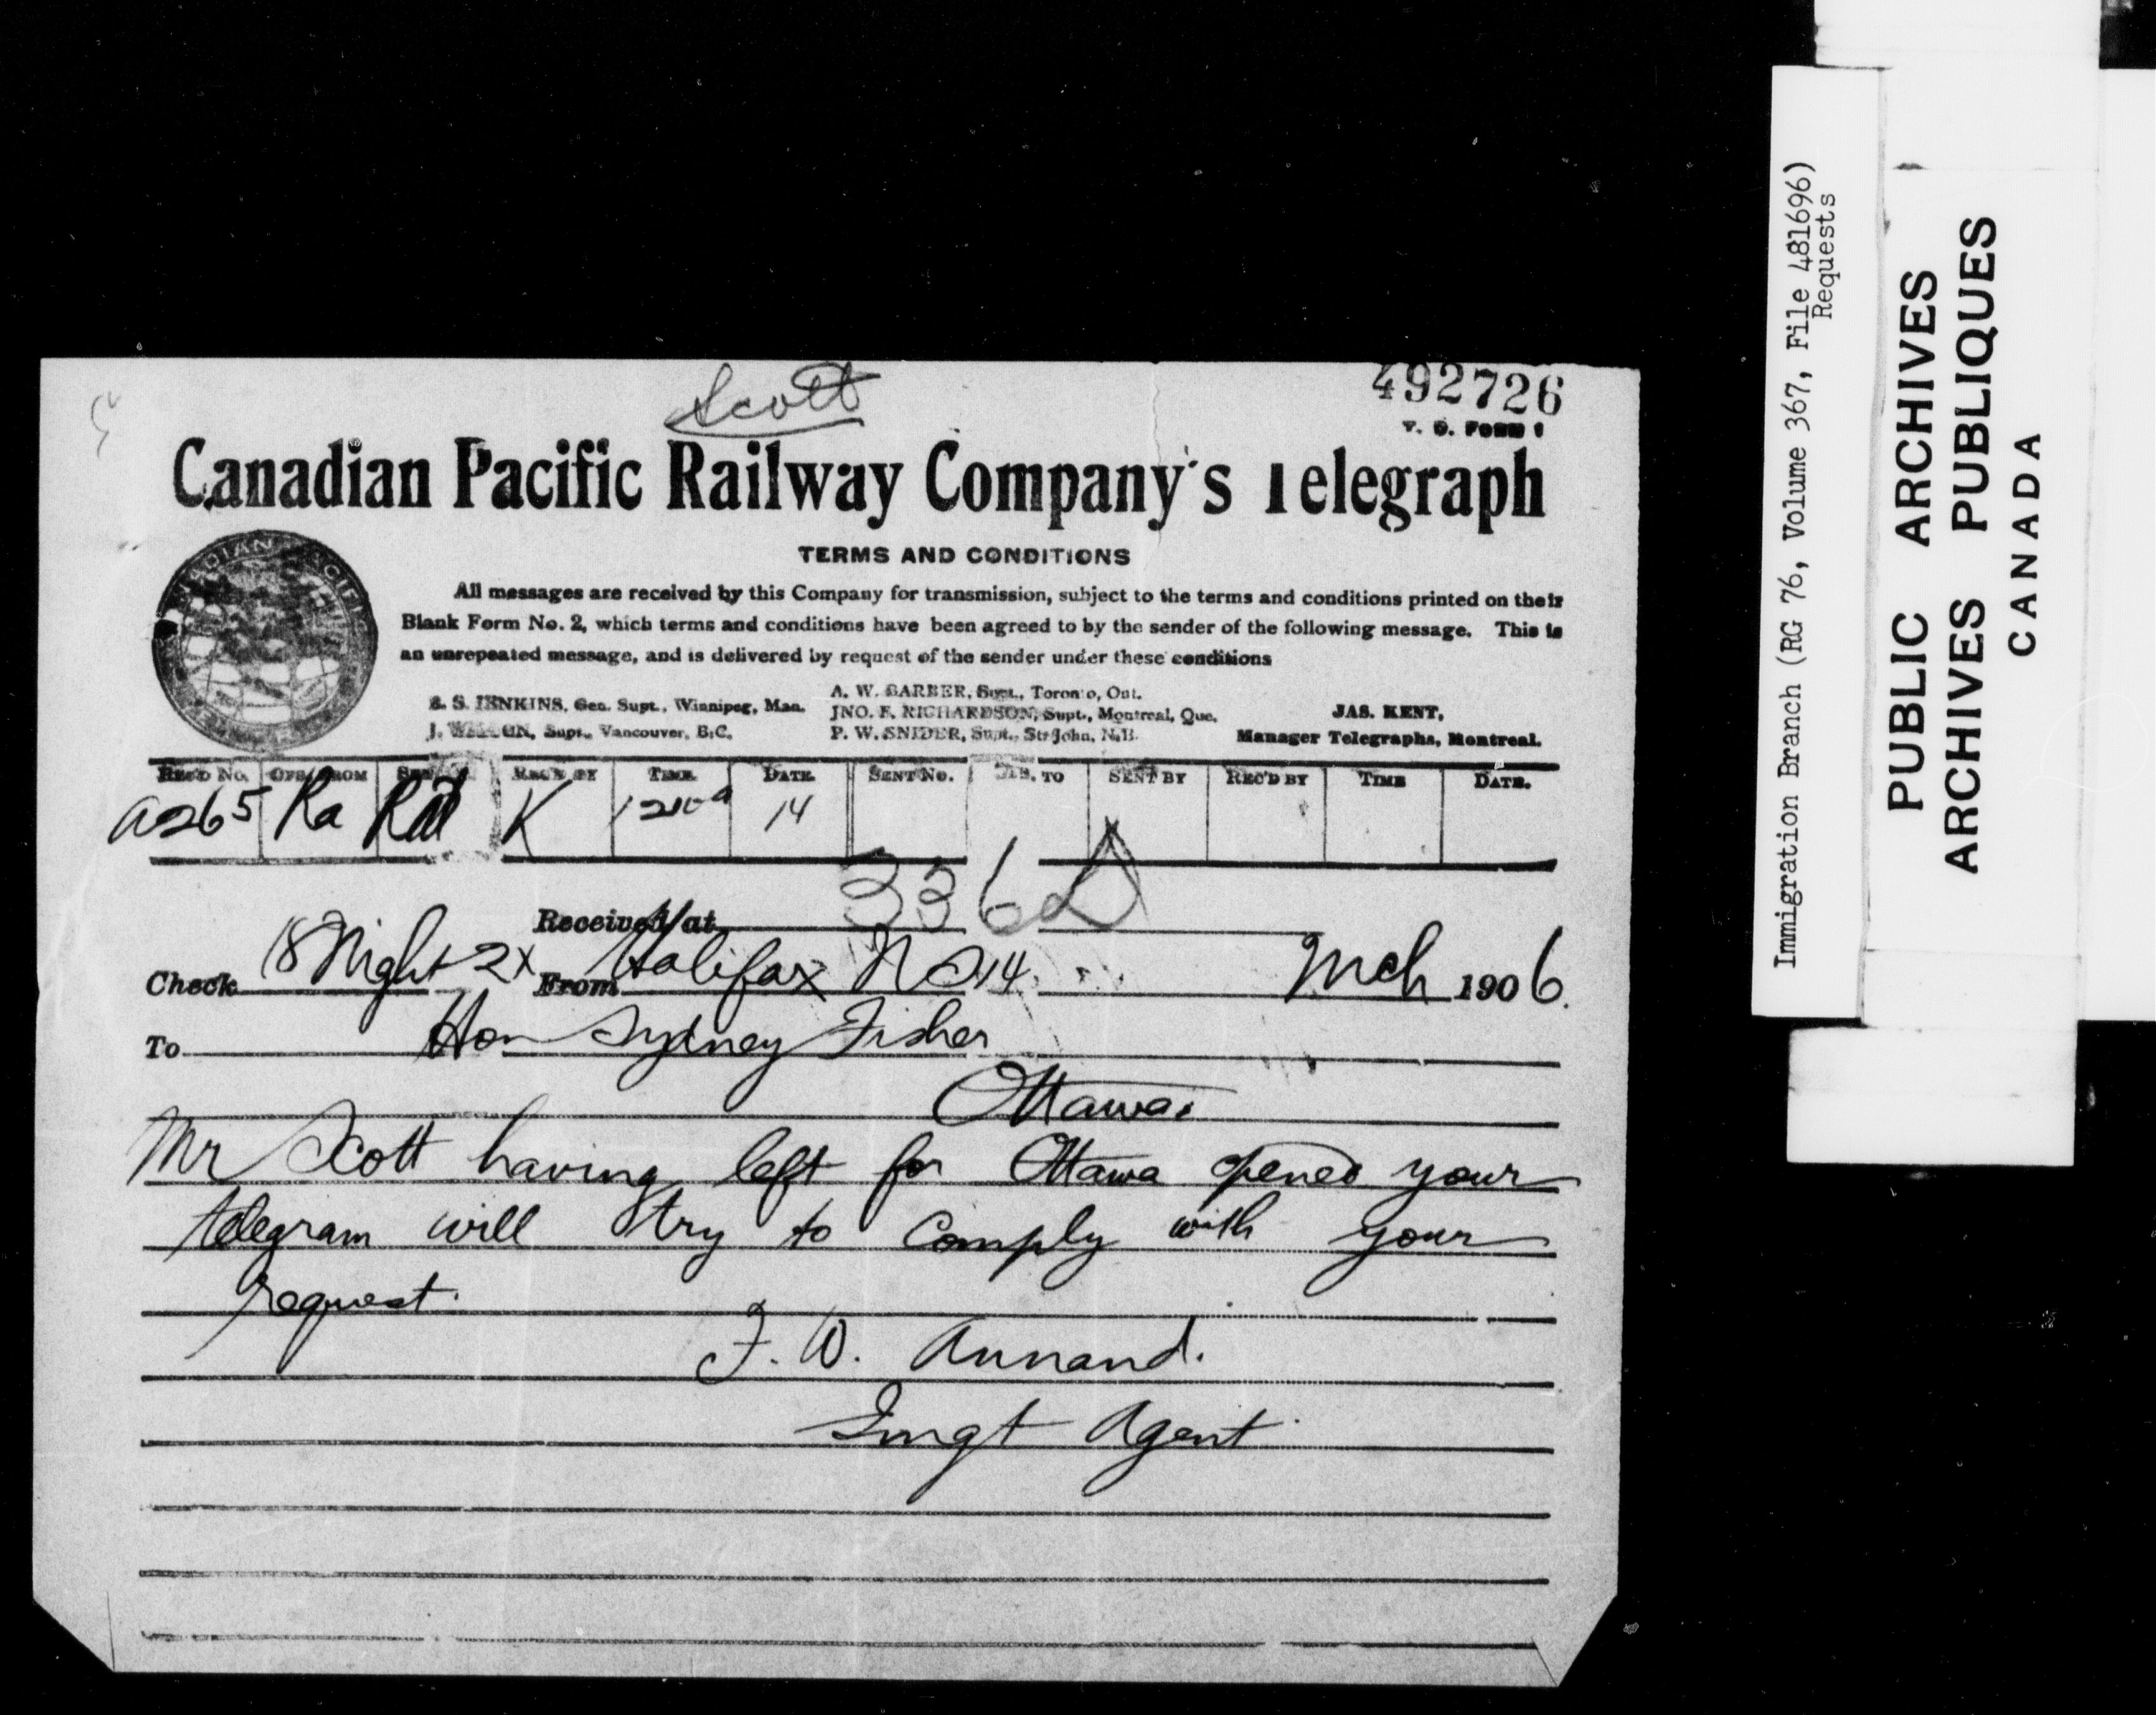 Scott
492726
T. D. FORM 1
Canadian Pacific Railway Company's Telegraph
TERMS AND CONDITIONS
All messages are received by this Company for transmission, subject to the terms and conditions printed on their
Blank Form No. 2, which terms and conditions have been agreed to by the sender of the following message. This is
an unrepeated message, and is delivered by request of the sender under these conditions
B. S. JENKINS, Gen. Supt., Winnipeg, Man.
J. WILSON, Supt., Vancouver, B.C.
A. W. BARBER, Supt., Toronto, Ont.
JNO. F. RICHARDSON, Supt., Montreal, Que.
P. W. SNIDER, Supt., St. John, N.B.
JAS. KENT,
Manager Telegraphs, Montreal.
REC'D No. OFS. FROM REC'D BY TIME DATE SENT No. TO SENT BY REC'D BY TIME DATE.
a265 Ra K 14
336
Received at
Check 18 Night 2x From Halifax NS 14 Mch 1906.
To Hon Sydney Fisher
Ottawa.
Mr Scott having left for Ottawa opened your
telegram will try to comply with your
request.
F. W. Annand.
Imgt Agent
Immigration Branch (RG 76, Volume 367, File 481696)
Requests
PUBLIC ARCHIVES
ARCHIVES PUBLIQUES
CANADA